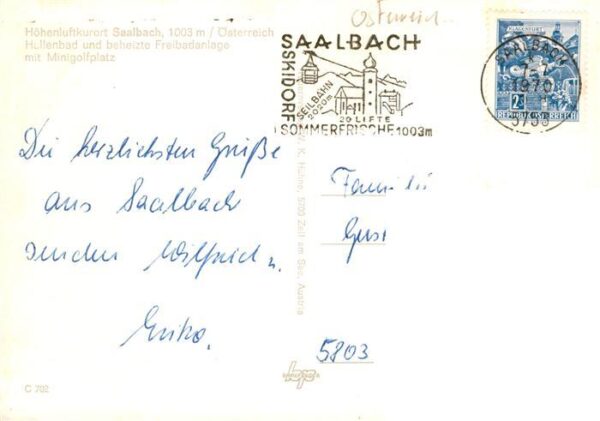 Österreich
Höhenluftkurort Saalbach, 1003 m / Österreich
Hallenbad und beheizte Freibadanlage
mit Minigolfplatz
SAALBACH
SKIDORF
SEILBAHN
2020m
20 LIFTE
SOMMERFRISCHE 1003m
KLAGENFURT
2S
REPUBLIK ÖSTERREICH
SAALBACH
1970
5753
Die herzlichsten Grüße
aus Saalbach
senden Wilfried u.
Erika.
W. K. Hühne, 5700 Zell am See, Austria
Familie
5803
C 702